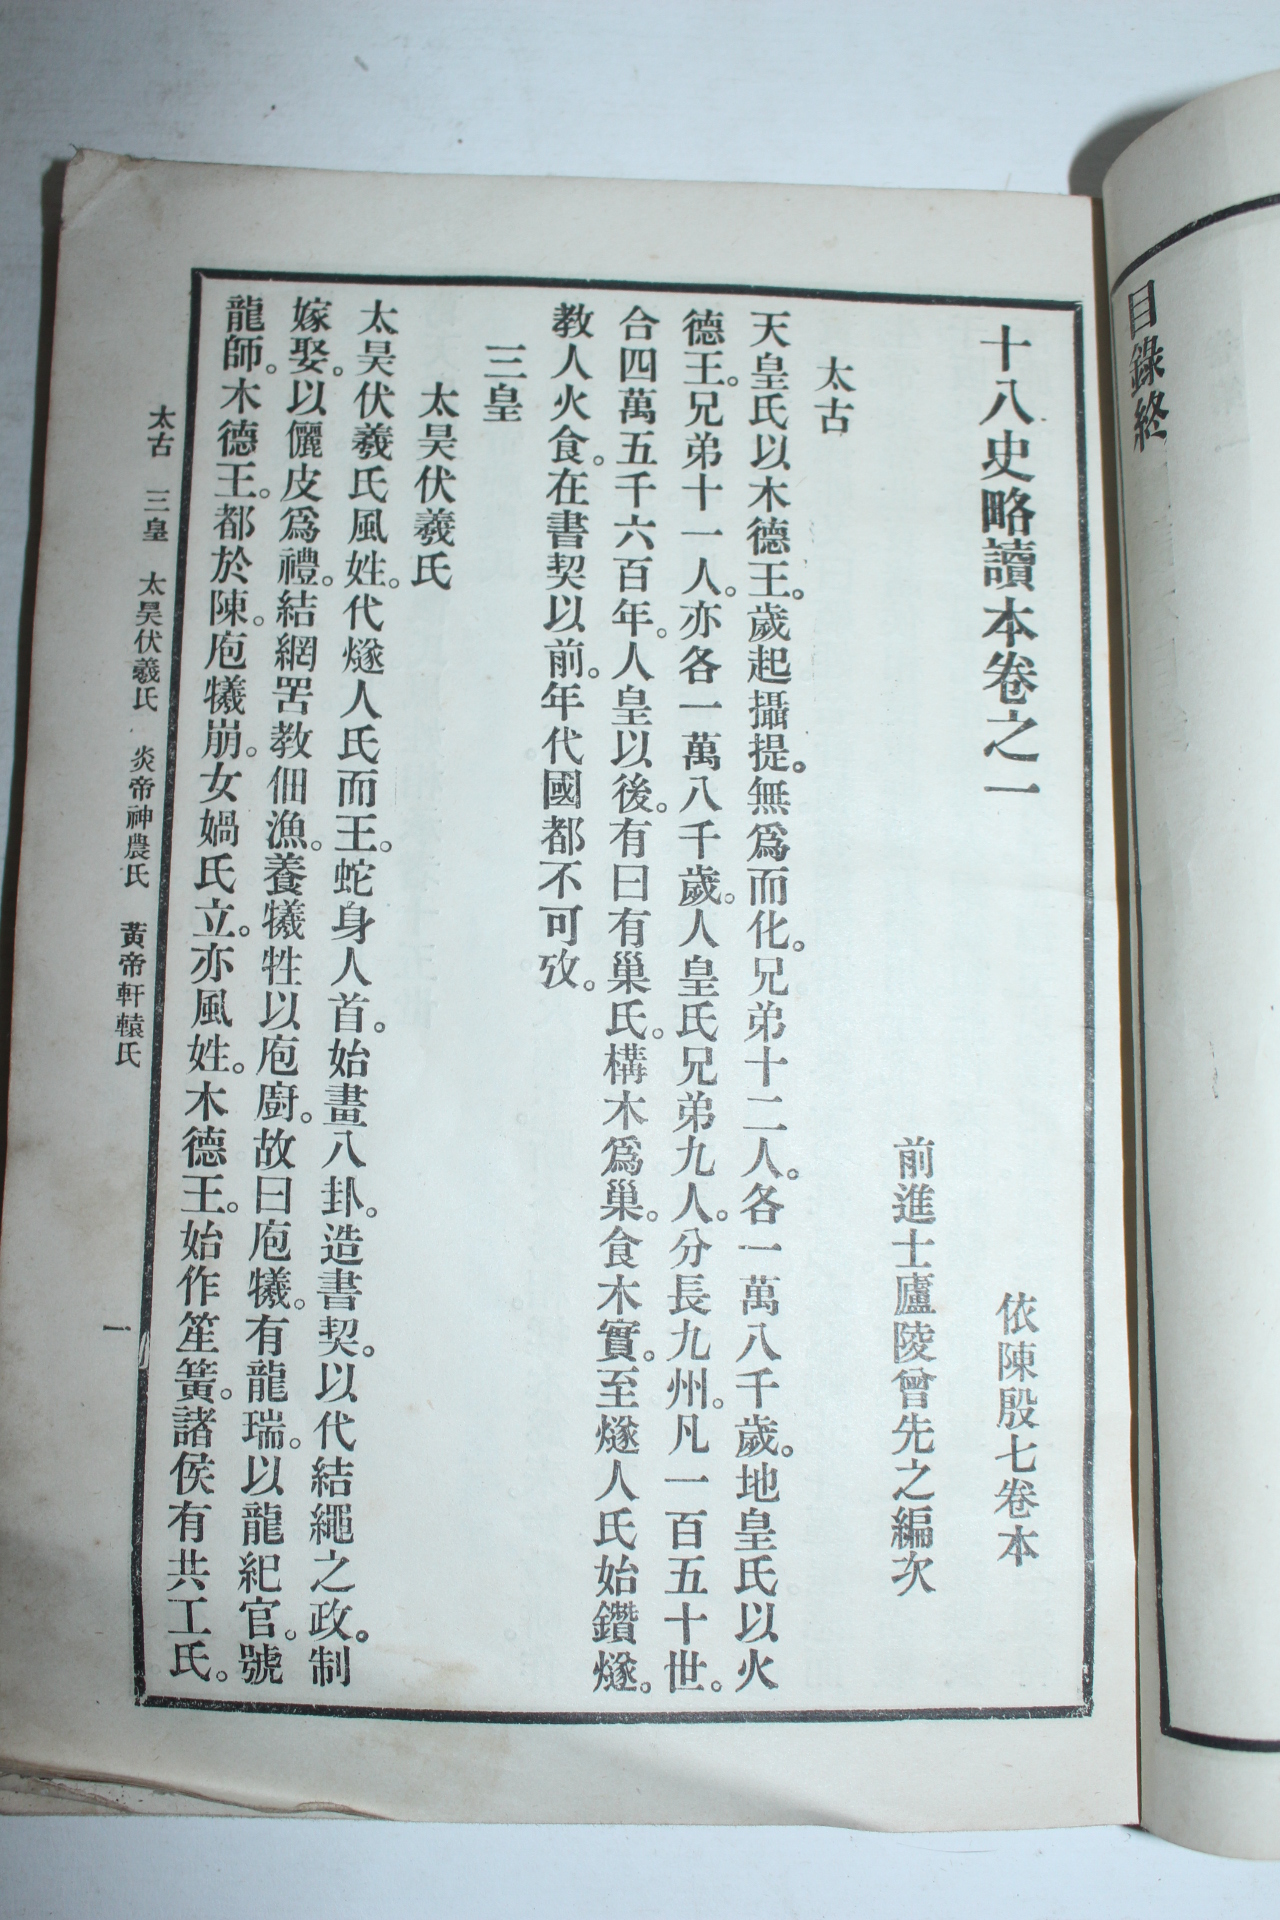 目錄終
十八史略讀本卷之一
依陳殷七卷本
前進士廬陵曾先之編次
太古
天皇氏以木德王。歲起攝提。無爲而化。兄弟十二人。各一萬八千歲。地皇氏以火
德王。兄弟十一人。亦各一萬八千歲。人皇氏兄弟九人。分長九州。凡一百五十世。
合四萬五千六百年。人皇以後。有曰有巢氏。構木爲巢。食木實。至燧人氏始鑽燧。
教人火食。在書契以前。年代國都不可攷。
三皇
太昊伏羲氏
太昊伏羲氏風姓。代燧人氏而王。蛇身人首。始畫八卦。造書契。以代結繩之政。制
嫁娶。以儷皮爲禮。結網罟教佃漁。養犧牲以庖廚。故曰庖犧。有龍瑞。以龍紀官。號
龍師。木德王。都於陳。庖犧崩。女媧氏立。亦風姓。木德王。始作笙簧。諸侯有共工氏。
太古 三皇 太昊伏羲氏 炎帝神農氏 黃帝軒轅氏
一